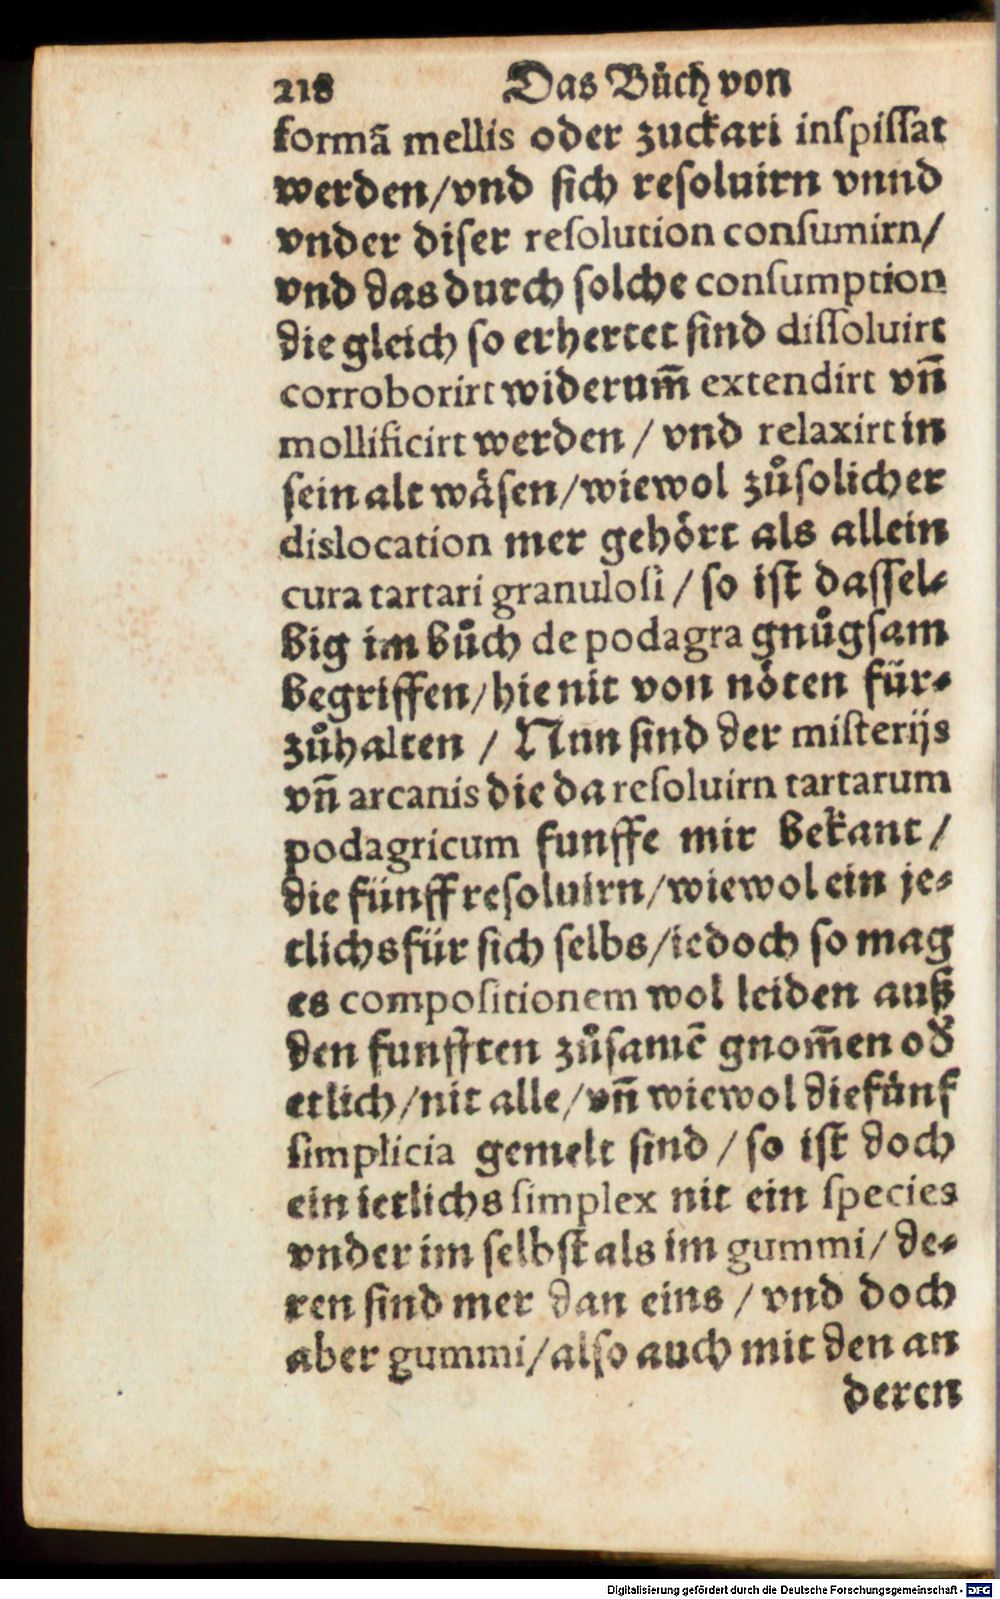 218 Das Bůch von
formā mellis oder zuckari inſpiſſat
werden/vnd ſich reſoluirn vnnd
vnder diſer reſolution conſumirn/
vnd das durch ſolche conſumption
die gleich ſo erhertet ſind diſſoluirt
corroborirt widerum̃ extendirt vñ
mollificirt werden / vnd relaxirt in
ſein alt wäſen/wiewol zůſolicher
dislocation mer gehört als allein
cura tartari granuloſi / ſo iſt daſſel⸗
big im bůch de podagra gnůgſam
begriffen/hie nit von nöten für⸗
zůhalten / Nun ſind der miſterijs
vñ arcanis die da reſoluirn tartarum
podagricum funffe mir bekant /
die fünff reſoluirn/wiewol ein je⸗
tlichs für ſich ſelbs/iedoch ſo mag
es compoſitionem wol leiden auß
den funfften zůſamē gnom̃en oď
etlich/nit alle/vñ wiewol die fünf
ſimplicia gemelt ſind / ſo iſt doch
ein ietlichs ſimplex nit ein ſpecies
vnder im ſelbſt als im gummi/ de⸗
ren ſind mer dan eins / vnd doch
aber gummi/alſo auch mit den an
deren
Digitalisierung gefördert durch die Deutsche Forschungsgemeinschaft - DFG